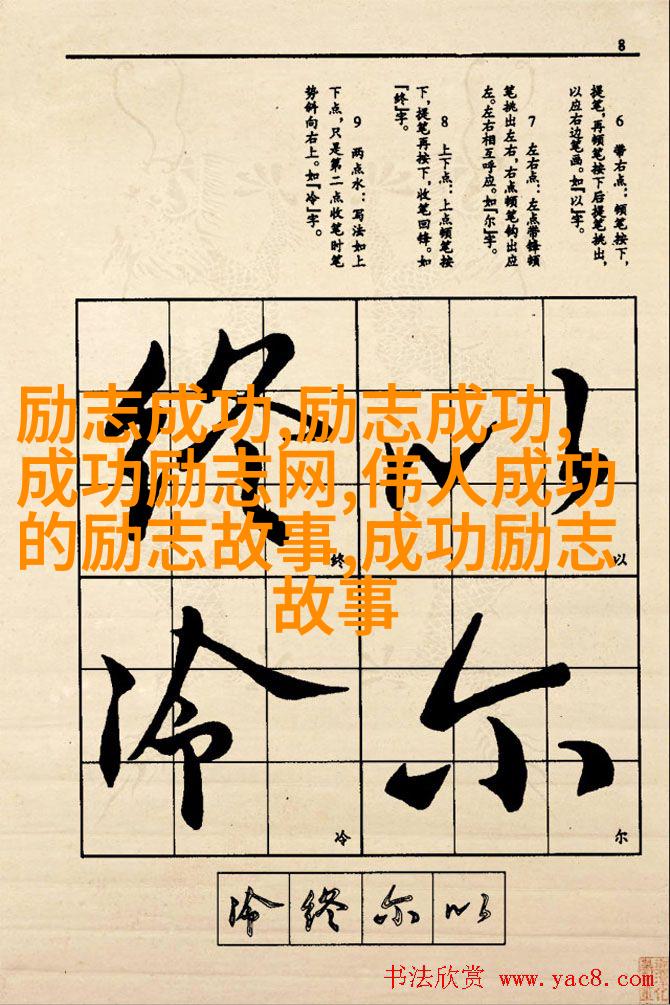 8
6 带右点：顿笔按下，
提笔，再顿笔按下后提笔挑出，
以应右边笔画。如『以』字。
7 左右点：左点带锋顿
笔挑出左右，右点顿笔钩出应
左。左右相互呼应。如『尔』字。
8 上下点：上点顿笔按
下，提笔再按下，收笔回锋。如
『终』字。
9 两点水：写法如上
下点，只是第二点收笔时笔
势斜向右上。如『冷』字。
励志成功,励志成功,
成功励志网,伟人成功
的励志故事,成功励志
故事
终 以
终 以
冷 尔
冷 尔
冷 终 尔 以
书法欣赏 www.yac8.com